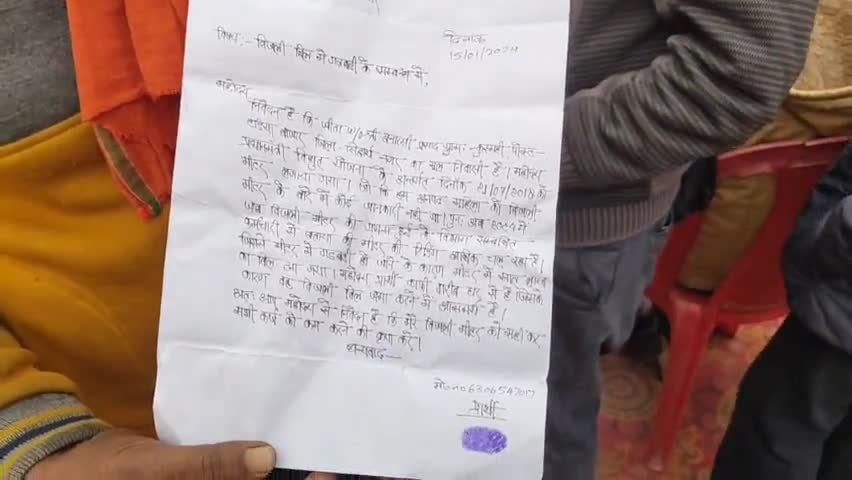 दिनांक
15/01/2024
विषय :- बिजली बिल में गड़बड़ी के सम्बन्ध में,
महोदय,
निवेदन है कि गीता w/o श्री बनारसी प्रसाद ग्राम:-
बाजार जिला सिद्धार्थ नगर का मूल निवासी है। महोदय
प्रधानमंत्री विद्युत योजना के अन्तर्गत दिनांक 21/07/2018 को
मीटर लगाया गया। जो कि हम अनपढ़ महिला को बिजली
मीटर के बारे में कोई जानकारी नहीं था। पुनः अब 2024 में
जब बिजली मीटर की हुई कि विभाग सम्बन्धित
कर्मचारी ने बताया की मीटर की रीडिंग अधिक चल रहा है।
जिसमें मीटर में गड़बड़ी हो जाने के कारण मीटर में सात लाख
का बिल आ गया। महोदय प्रार्थी काफी गरीब घर से है जिसके
कारण वह बिजली बिल जमा करने में असमर्थ है।
अतः आप महोदय से निवेदन है कि मेरे बिजली मीटर को सही कर
सभी कार्य को कम करने की कृपा करें।
धन्यवाद
मो०no 6306547017
प्रार्थी